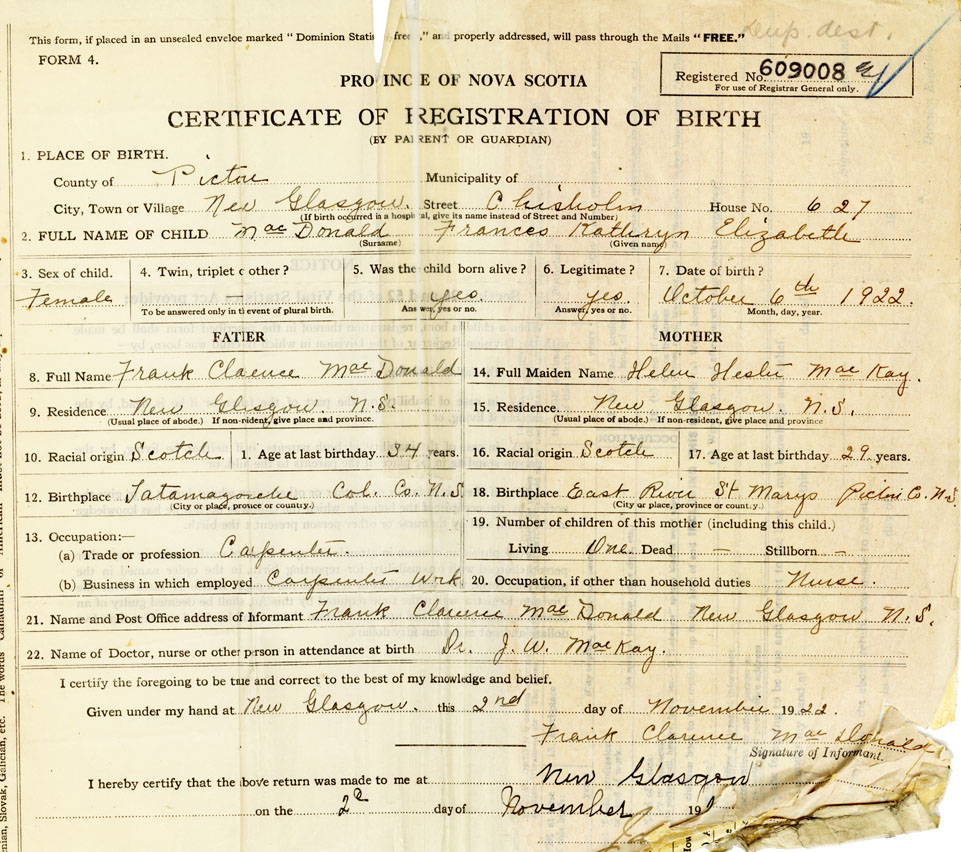 This form, if placed in an unsealed enveloe marked "Dominion Statis free," and properly addressed, will pass through the Mails "FREE."
Dup. dest.
FORM 4.
Registered No. 609008
For use of Registrar General only.
PROVINCE OF NOVA SCOTIA
CERTIFICATE OF REGISTRATION OF BIRTH
(BY PARENT OR GUARDIAN)
1. PLACE OF BIRTH.
County of Pictou Municipality of
City, Town or Village New Glasgow. Street Chisholm House No. 627
(If birth occurred in a hospital, give its name instead of Street and Number)
2. FULL NAME OF CHILD MacDonald Frances Kathryn Elizabeth
(Surname) (Given name)
3. Sex of child. 4. Twin, triplet or other? 5. Was the child born alive? 6. Legitimate? 7. Date of birth?
Female — yes. yes. October 6th 1922.
To be answered only in the event of plural birth. Answer, yes or no. Answer, yes or no. Month, day, year.
FATHER MOTHER
8. Full Name Frank Clarence MacDonald 14. Full Maiden Name Helen Hester MacKay.
9. Residence New Glasgow. N.S. 15. Residence New Glasgow. N.S.
(Usual place of abode.) If non-rident, give place and province. (Usual place of abode.) If non-resident, give place and province
10. Racial origin Scotch 1. Age at last birthday 34 years. 16. Racial origin Scotch 17. Age at last birthday 29. years.
12. Birthplace Tatamagouche Col. Co. N.S 18. Birthplace East River St Marys Pictou Co. N.S.
(City or place, provice or country.) (City or place, province or country.)
19. Number of children of this mother (including this child.)
13. Occupation:—
(a) Trade or profession Carpenter. Living One. Dead — Stillborn —
(b) Business in which employed Carpenter Wrk. 20. Occupation, if other than household duties Nurse.
21. Name and Post Office address of Informant Frank Clarence MacDonald New Glasgow N.S.
22. Name of Doctor, nurse or other person in attendance at birth Dr. J. W. MacKay.
I certify the foregoing to be true and correct to the best of my knowledge and belief.
Given under my hand at New Glasgow. this 2nd day of November 1922.
Frank Clarence MacDonald
Signature of Informant.
I hereby certify that the above return was made to me at New Glasgow
on the 2d day of November 19